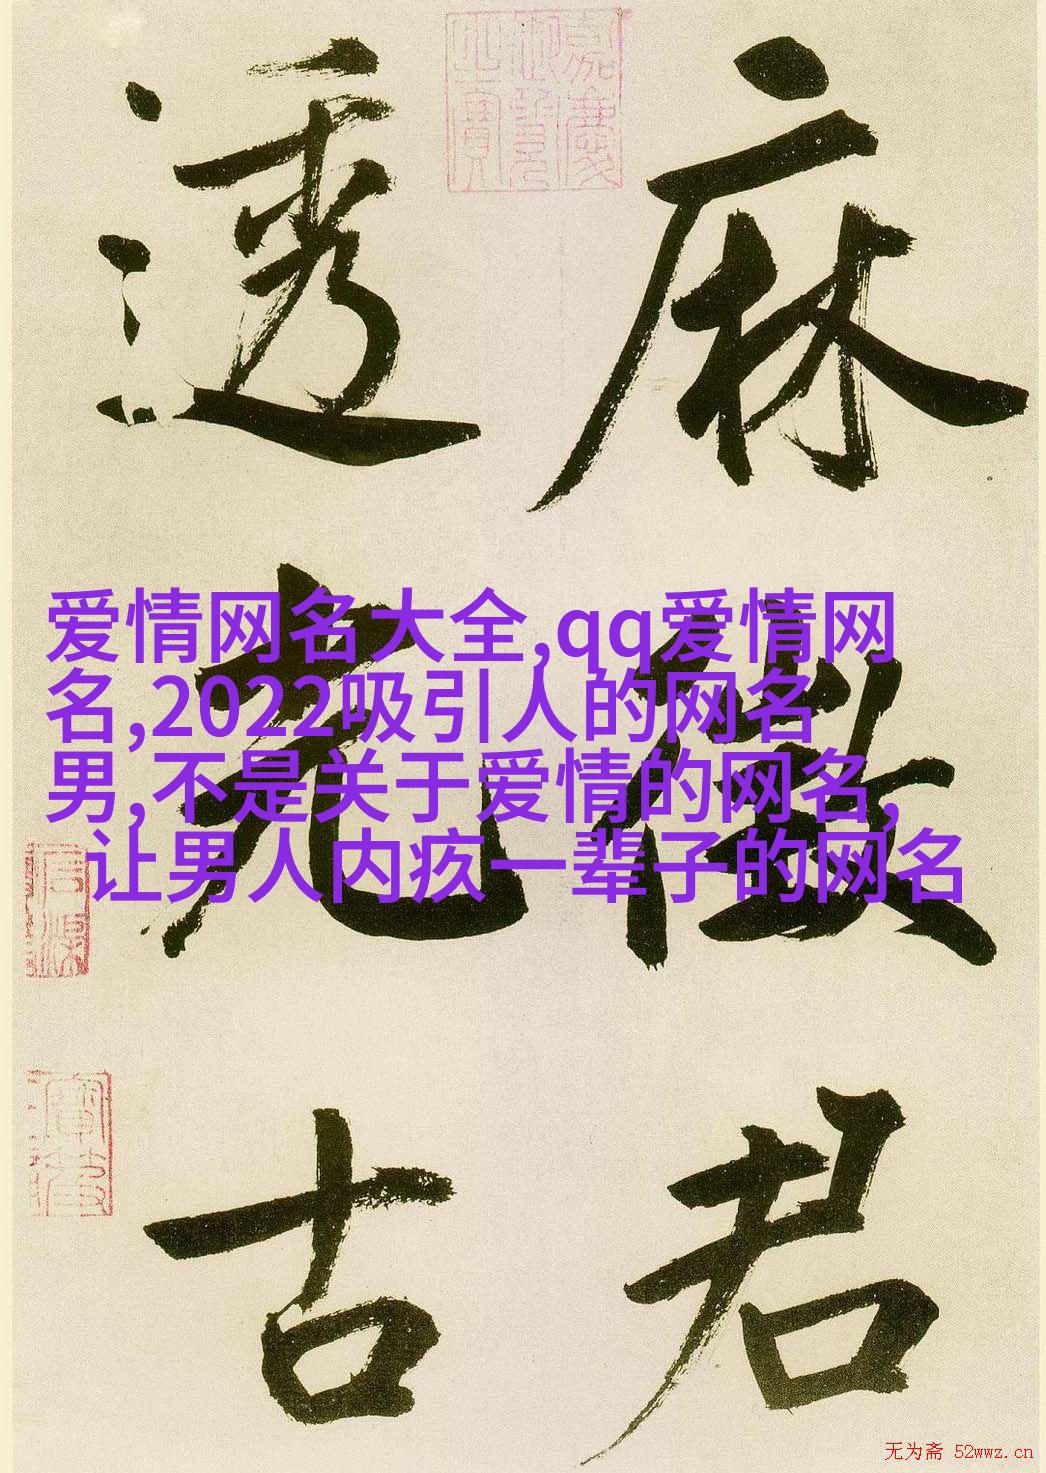 麻
君
透
光
古
爱情网名大全,qq爱情网
名,2022吸引人的网名
男,不是关于爱情的网名,
让男人内疚一辈子的网名
无为斋 52wwz.cn